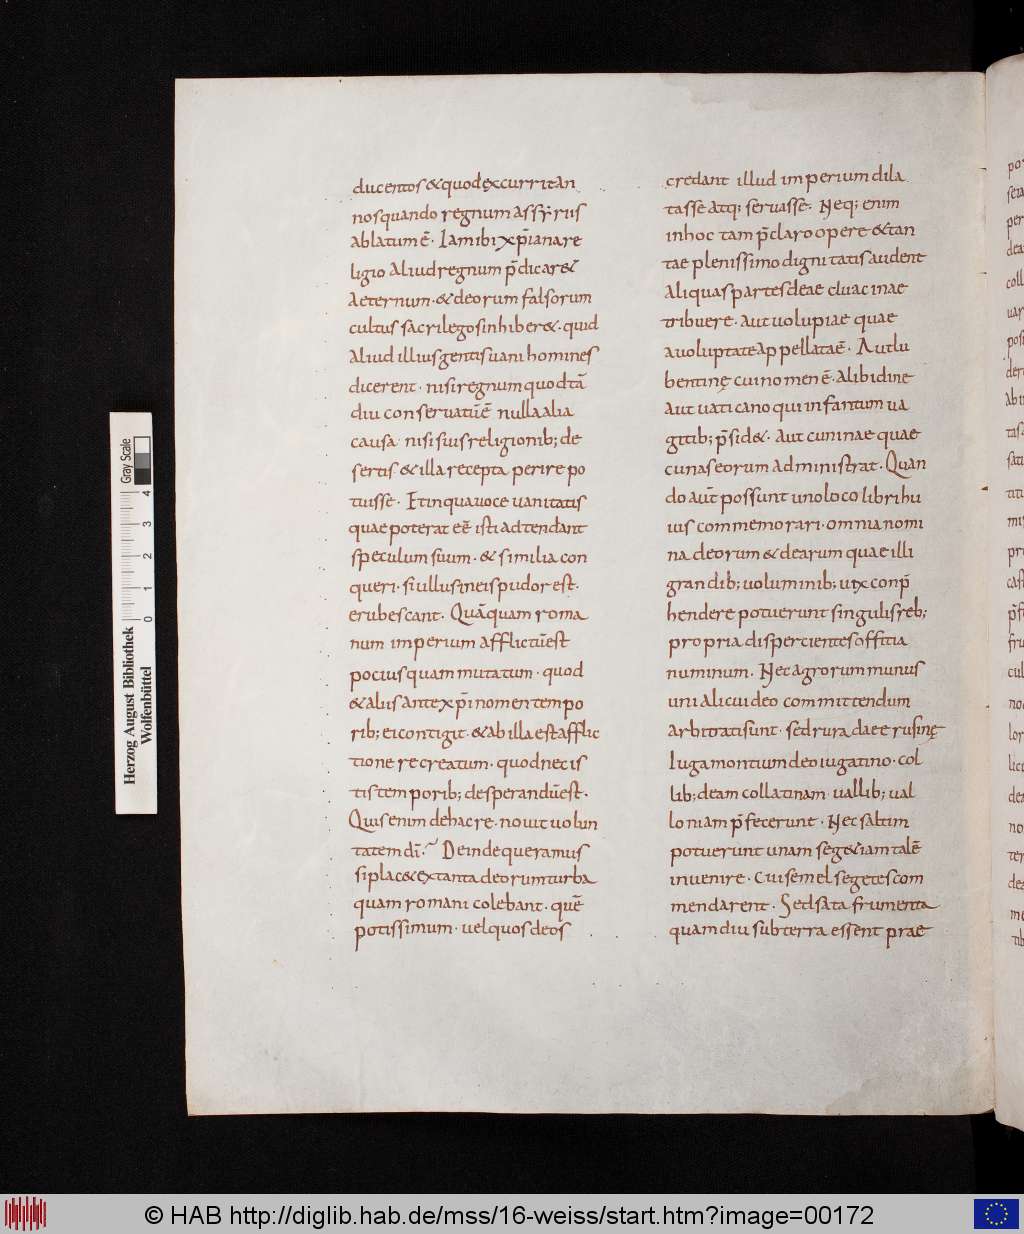 ducentos & quod excurrit an
nos quando regnum assyriis
ablatum ē· Iam ibi xp̄iana re
ligio aliud regnum p̄dicar&
aeternum· & deorum falsorum
cultus sacrilegos inhiber&· quid
aliud illius gentis uani homines
dicerent· nisi regnum quod tā
diu conseruatū ē nulla alia
causa nisi suis religionib; de
sertis & illa recepta perire po
tuisse· Et in qua uoce uanitatis
quae poterat eē isti adtendant
speculum suum· & similia con
queri· si ullus in eis pudor est·
erubescant· Quāquam roma
num imperium afflictū est
pocius quam mutatum· quod
& aliis ante xp̄i nomen tempo
rib; ei contigit· & ab illa est afflic
tione recreatum· quod nec is
tis temporib; desperandū est·
Quis enim de hac re· nouit uolun
tatem dī· Deinde queramus
si plac& ex tanta deorum turba
quam romani colebant· quē
potissimum· uel quos deos
credant illud imperium dila
tasse atq; seruasse· Neq; enim
in hoc tam p̄claro opere & tan
tae plenissimo dignitatis audent
aliquas partes deae cluacinae
tribuere· aut uolupiae quae
a uoluptate appellata ē· Aut lu
bentinę cui nomen ē· a libidine
aut uaticano qui infantum ua
gitib; p̄sid&· aut cuninae quae
cunas eorum administrat· Quan
do aut̄ possunt uno loco libri hu
ius commemorari· omnia nomi
na deorum & dearum quae illi
grandib; uoluminib; uix conp̄
hendere potuerunt singulis reb;
propria dispercientes offitia
numinum· Nec agrorum munus
uni alicui deo committendum
arbitrati sunt· sed rura deae rusinę
Iuga montium deo iugatino· col
lib; deam collatinam· uallib; ual
loniam p̄fecerunt· Nec saltim
potuerunt unam seg&iam talē
inuenire· cui semel segetes com
mendarent· Sed sata frumenta
quamdiu sub terra essent prae
Herzog August Bibliothek
Wolfenbüttel
0 1 2 3 4
Gray Scale
© HAB http://diglib.hab.de/mss/16-weiss/start.htm?image=00172